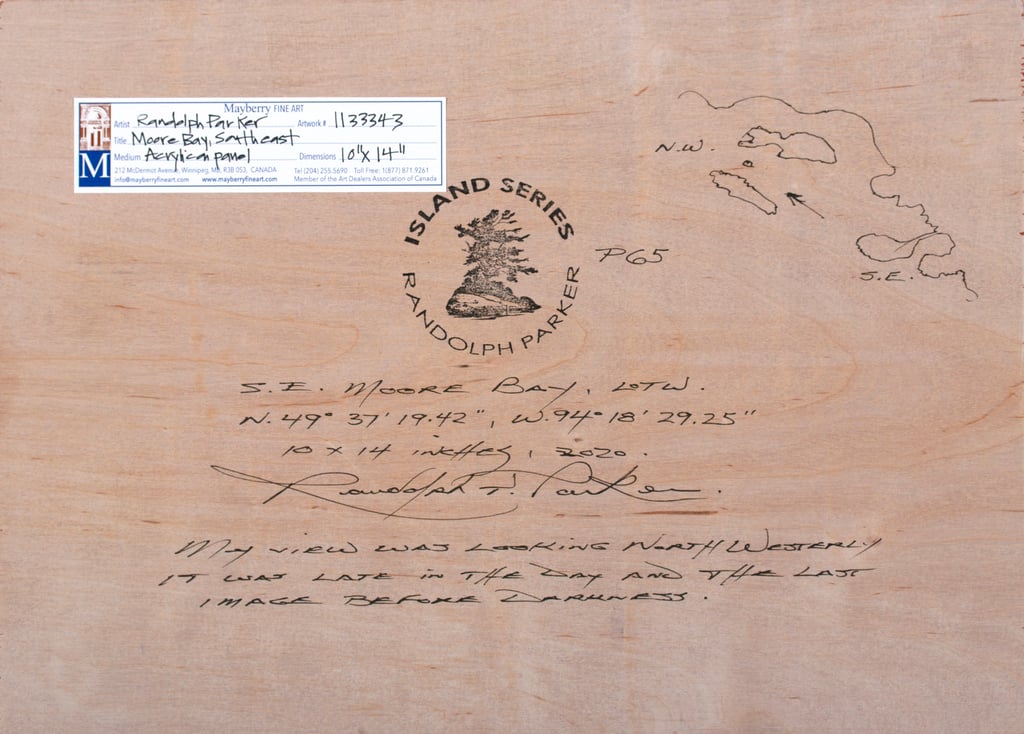 Mayberry FINE ART
Artist Randolph Parker Artwork # 1133343
Title Moore Bay, Southeast
Medium Acrylic on panel Dimensions 10" x 14"
212 McDermot Avenue, Winnipeg, MB, R3B 0S3, CANADA Tel (204) 255.5690 Toll Free: 1(877) 871.9261
info@mayberryfineart.com www.mayberryfineart.com Member of the Art Dealers Association of Canada
M
N.W.
S.E.
ISLAND SERIES
RANDOLPH PARKER
P65
S.E. MOORE BAY, LOTW.
N. 49° 37' 19.42", W. 94° 18' 29.25"
10 x 14 inches, 2020.
Randolph T. Parker.
MY VIEW WAS LOOKING NORTH WESTERLY
IT WAS LATE IN THE DAY AND THE LAST
IMAGE BEFORE DARKNESS.